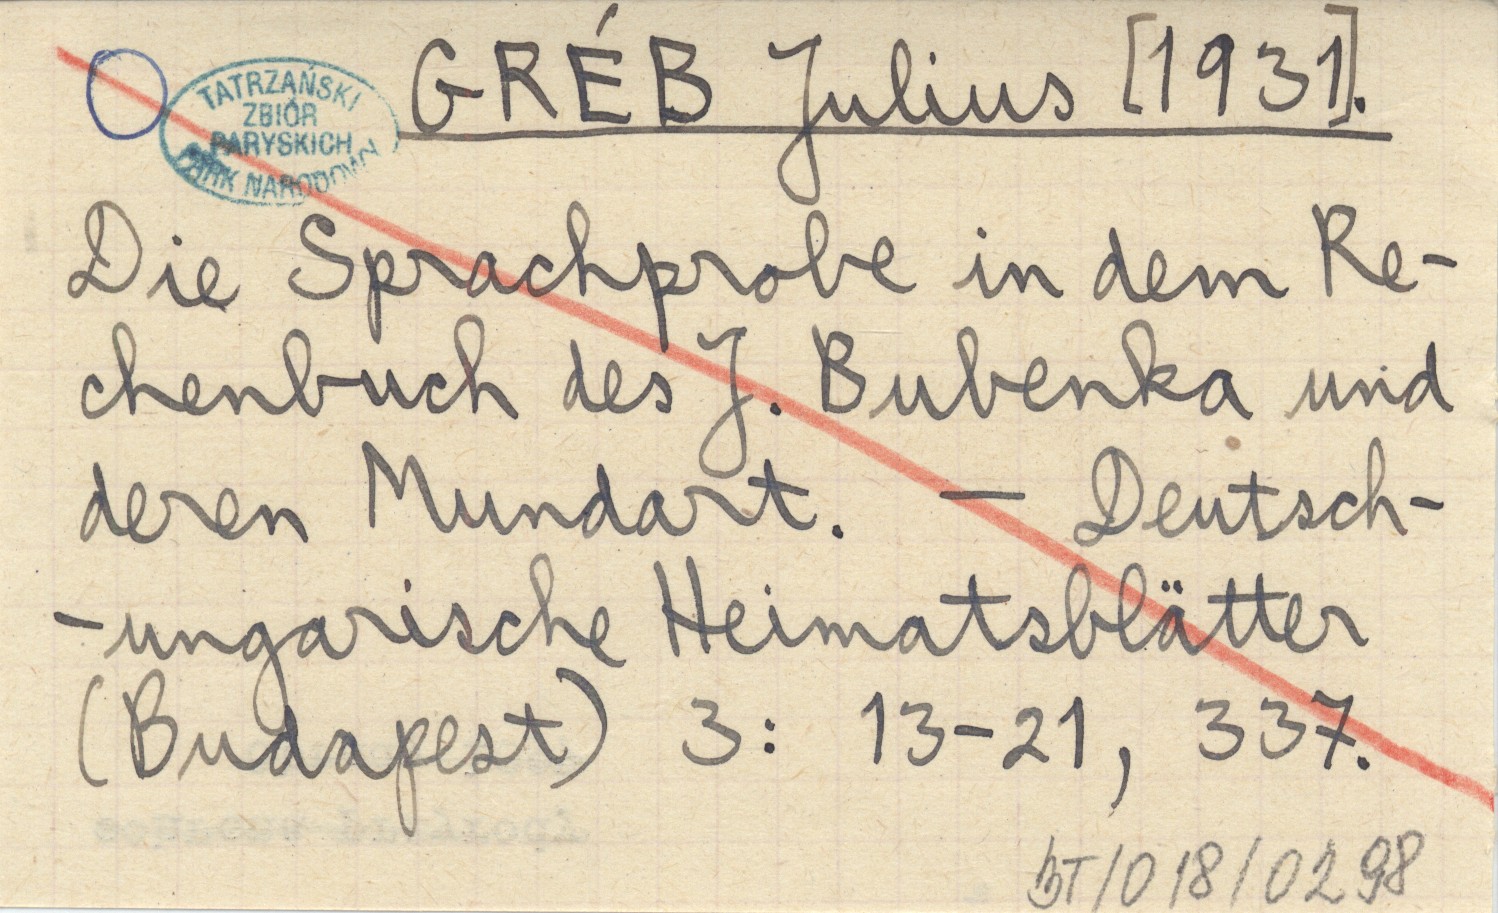 GRÉB Julius [1931].
TATRZAŃSKI
ZBIÓR
PARYSKICH
PARK NARODOWY
Die Sprachprobe in dem Re-
chenbuch des J. Bubenka und
deren Mundart. — Deutsch-
-ungarische Heimatsblätter
(Budapest) 3: 13-21, 337.
BT/018/0298